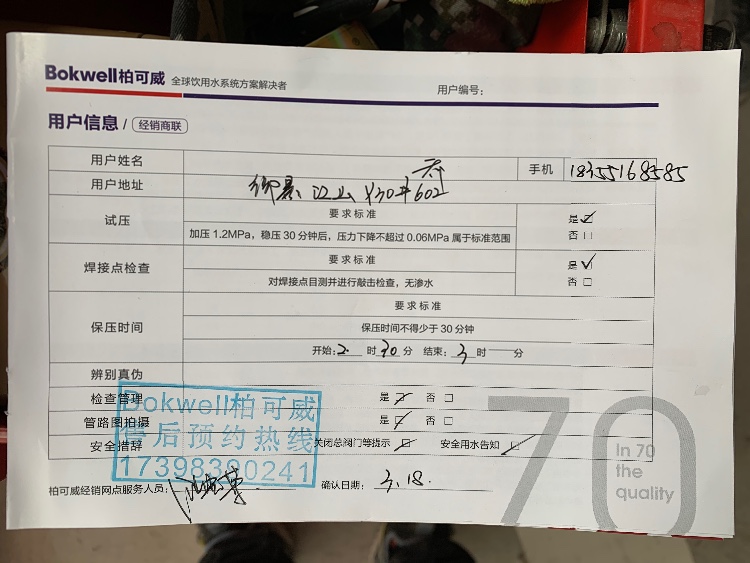 Bokwell柏可威 全球饮用水系统方案解决者
用户编号：
用户信息 / 经销商联
用户姓名
手机 18355168585
用户地址 御景江山 Y30#602
试压
要求标准
是 ☑
加压 1.2MPa，稳压 30 分钟后，压力下降不超过 0.06MPa 属于标准范围
否 □
焊接点检查
要求标准
是 ☑
对焊接点目测并进行敲击检查，无渗水
否 □
要求标准
保压时间
保压时间不得少于 30 分钟
开始：2 时 30 分 结束：3 时 分
辨别真伪
检查管理 是 ☑ 否 □
管路图拍摄 是 ☑ 否 □
安全措辞 关闭总阀门等提示 ☑ 安全用水告知 ☑
Bokwell柏可威
售后预约热线
17398390241
70
In 70
the
quality
柏可威经销网点服务人员：
确认日期： 3.18.